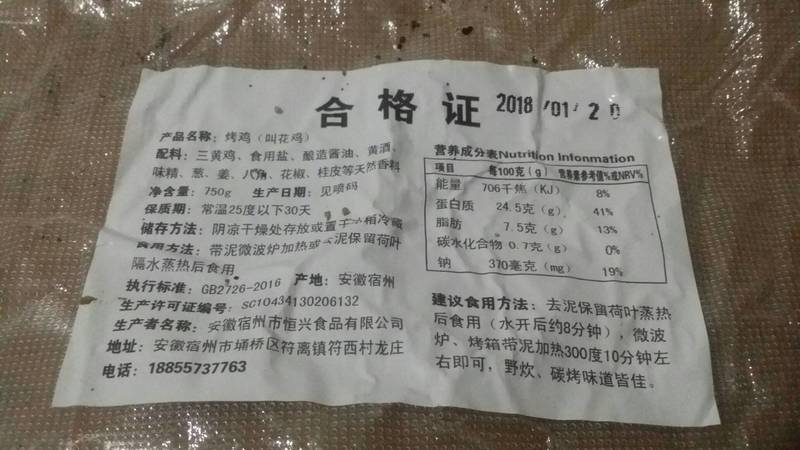 合格证 2018/01/20
产品名称：烤鸡（叫花鸡）
配料：三黄鸡、食用盐、酿造酱油、黄酒、
味精、葱、姜、八角、花椒、桂皮等天然香料
净含量：750g 生产日期：见喷码
保质期：常温25度以下30天
储存方法：阴凉干燥处存放或置于冰箱冷藏
食用方法：带泥微波炉加热或去泥保留荷叶
隔水蒸热后食用
执行标准：GB2726-2016 产地：安徽宿州
生产许可证编号：SC10434130206132
生产者名称：安徽宿州市恒兴食品有限公司
地址：安徽宿州市埇桥区符离镇符西村龙庄
电话：18855737763
营养成分表Nutrition Infonmation
项目 每100克(g) 营养素参考值%或NRV%
能量 706千焦(KJ) 8%
蛋白质 24.5克(g) 41%
脂肪 7.5克(g) 13%
碳水化合物 0.7克(g) 0%
钠 370毫克(mg) 19%
建议食用方法：去泥保留荷叶蒸热
后食用（水开后约8分钟），微波
炉、烤箱带泥加热300度10分钟左
右即可，野炊、碳烤味道皆佳。